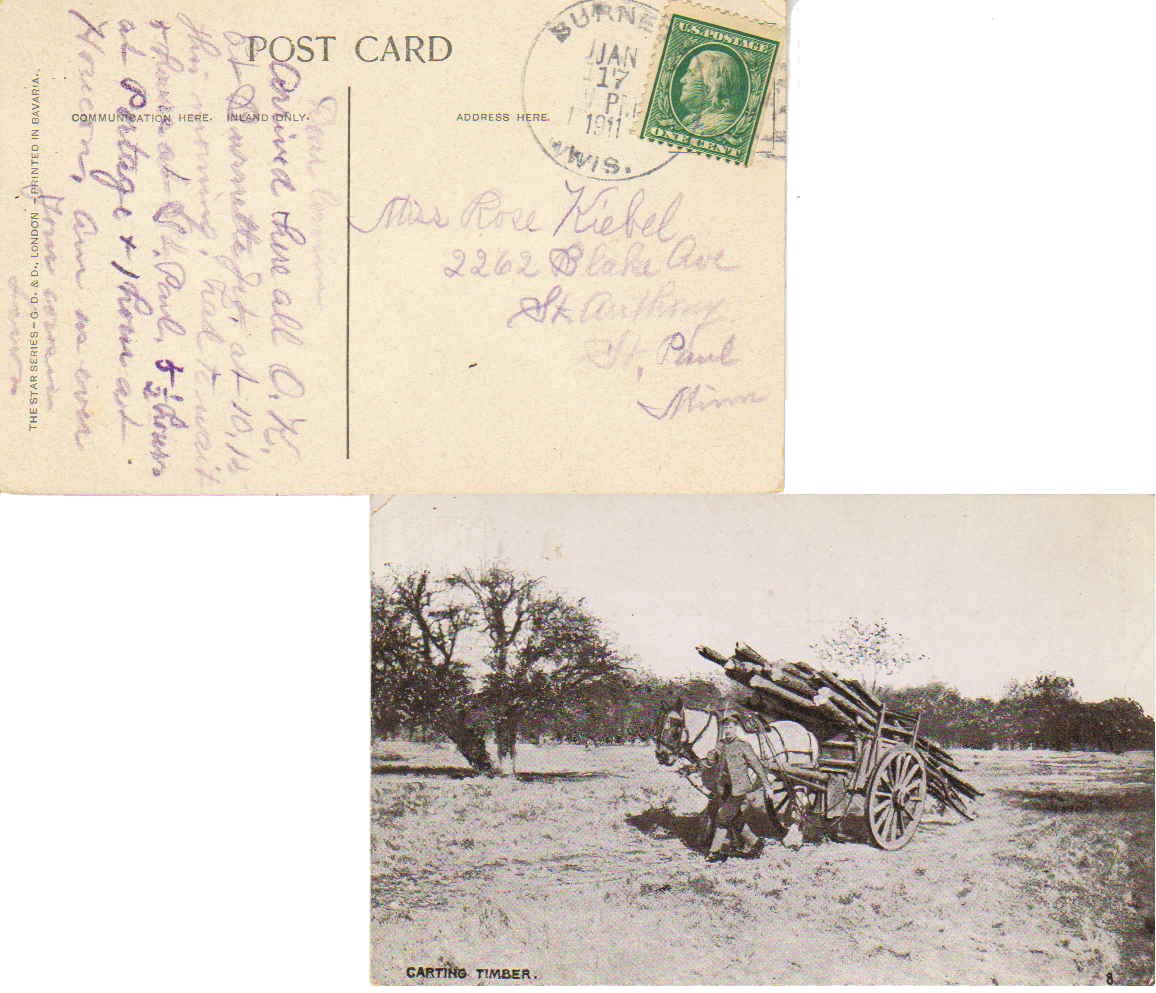 POST CARD
COMMUNICATION HERE. INLAND ONLY.
ADDRESS HERE.
THE STAR SERIES – G. D. & D., LONDON – PRINTED IN BAVARIA.
BURNE
JAN
17
1911
WIS.
U.S. POSTAGE
ONE CENT
Dear Cousin
Arrived here all O.K.
at Burnette Jct. at 10,15
this morning, had to wait
at St. Paul, 5 1/2 hours
at Portage + 1 hour at
Horicon, am as ever
Your cousin
Miss Rose Kiebel
2262 Blake Ave
St. Anthony
St. Paul
Minn
CARTING TIMBER.
8